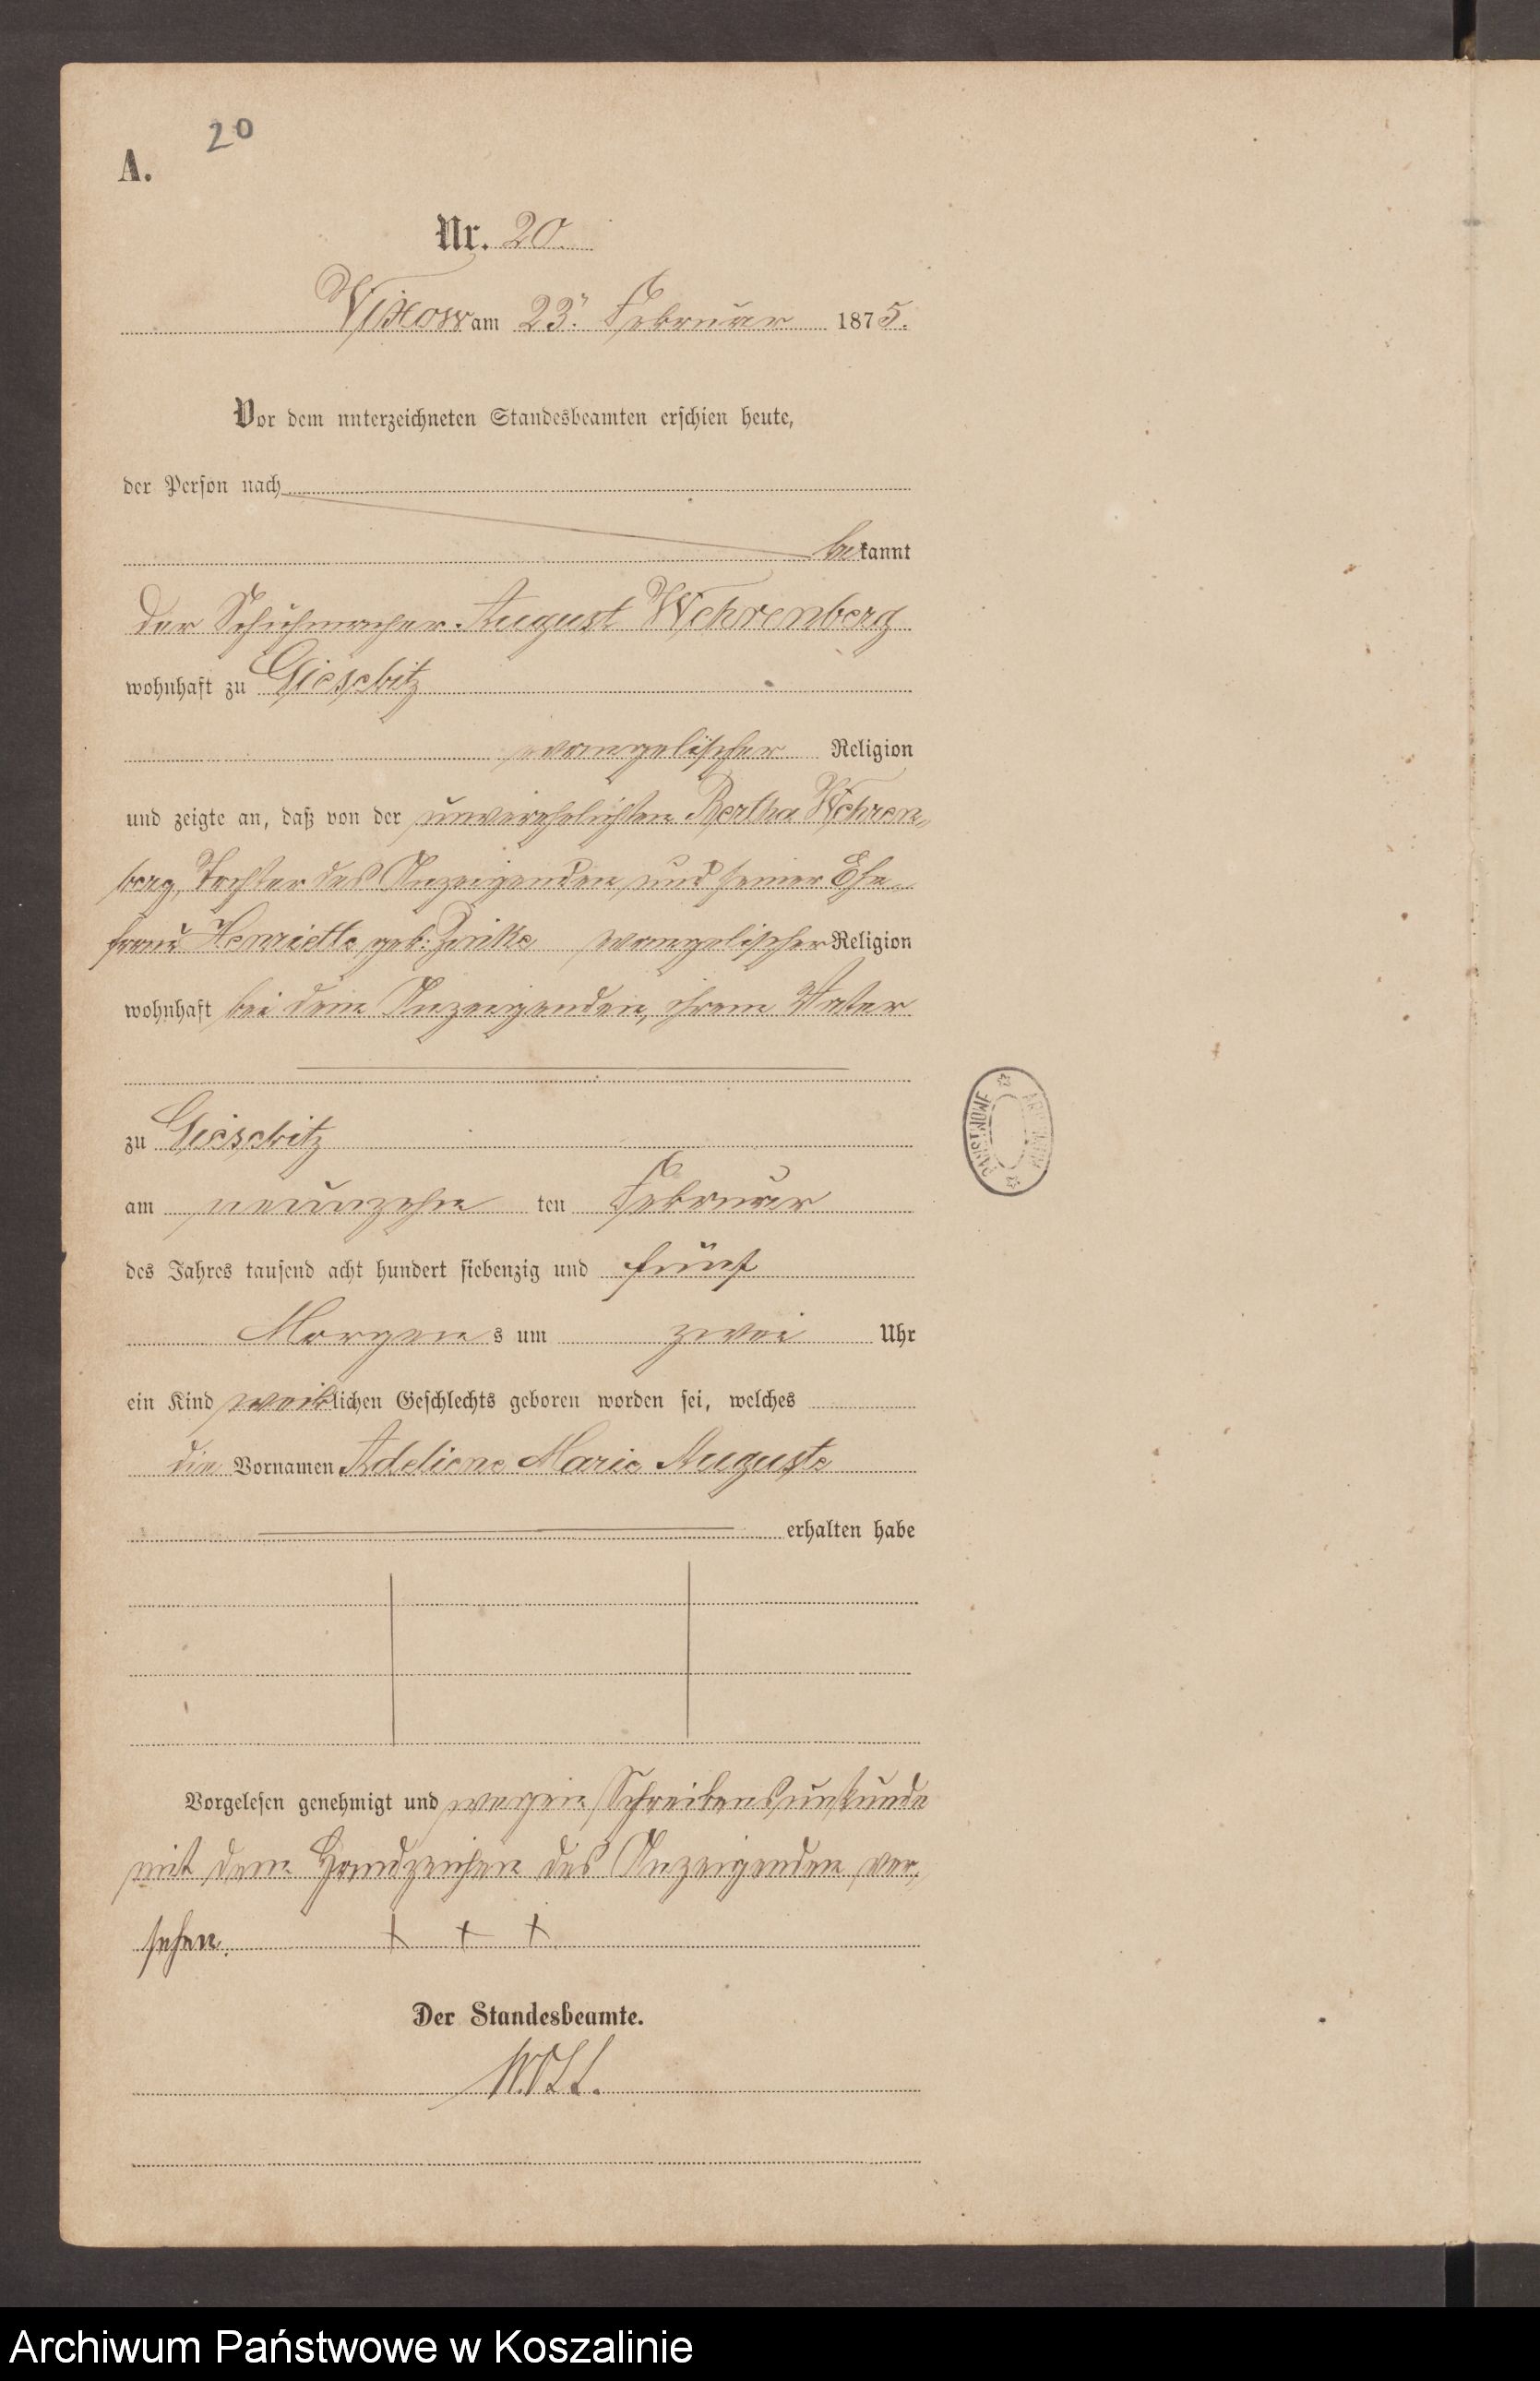 20
A.
Nr. 20.
Vixow am 23. Februar 1875.
Vor dem unterzeichneten Standesbeamten erschien heute,
der Person nach
bekannt
der Schuhmacher August Wehrenberg
wohnhaft zu Giesebitz
evangelischer Religion
und zeigte an, daß von der unverehelichten Bertha Wehren-
berg, Tochter des Anzeigenden und seiner Ehe-
frau Henriette geb: evangelischer Religion
wohnhaft bei dem Anzeigenden, ihrem Vater
zu Giesebitz
am neunzehn ten Februar
des Jahres tausend acht hundert siebenzig und fünf
Morgens um zwei Uhr
ein Kind weiblichen Geschlechts geboren worden sei, welches
die Vornamen Adeliene Marie Auguste
erhalten habe
Vorgelesen genehmigt und wegen Schreibensunkunde
mit dem Handzeichen des Anzeigenden ver-
sehen. + + +
Der Standesbeamte.
PAŃSTWOWE
Archiwum Państwowe w Koszalinie